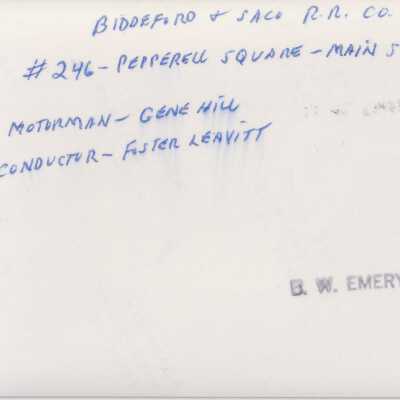 BIDDEFORD & SACO R.R. CO.
#246 - PEPPERELL SQUARE - MAIN S
MOTORMAN - GENE HILL
CONDUCTOR - FOSTER LEAVITT
B. W. EMERY